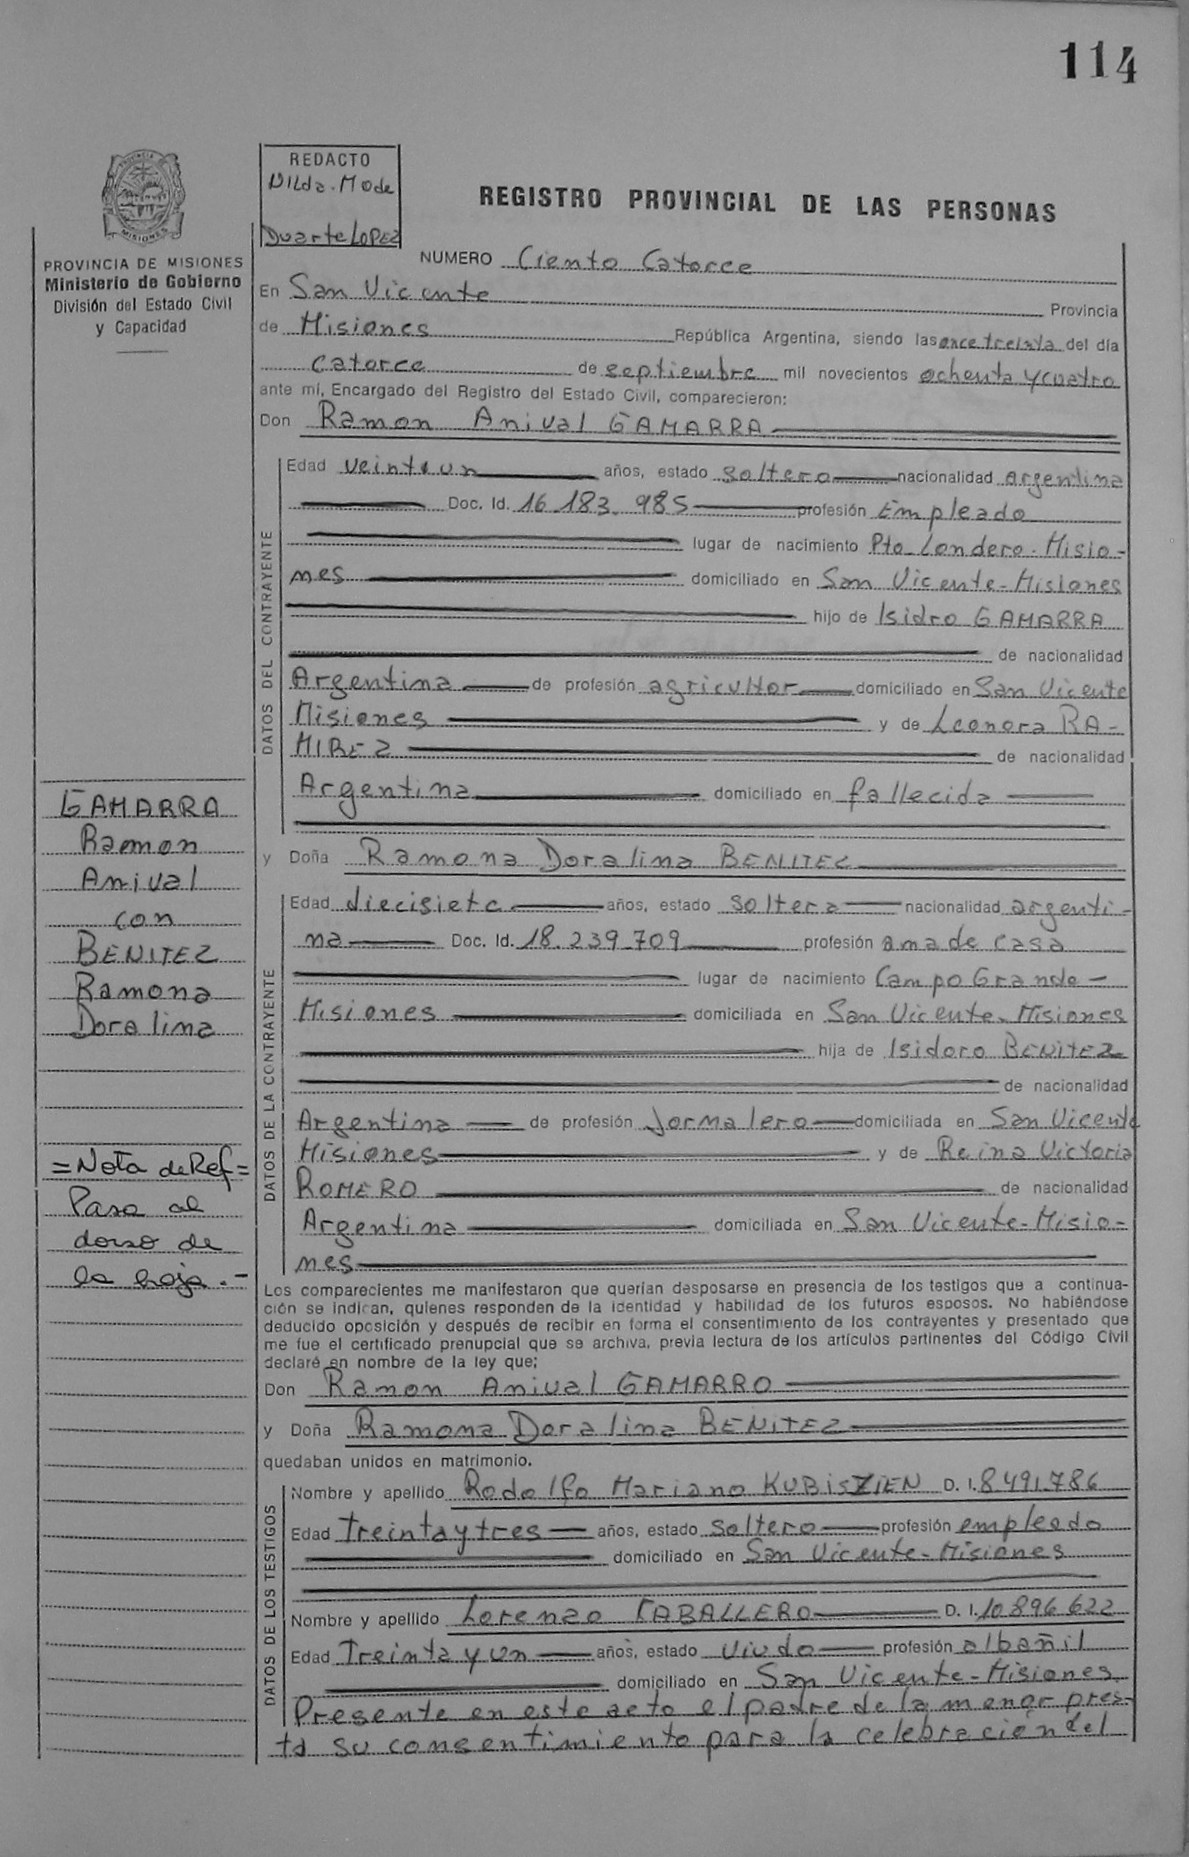 114
REDACTO
Nilda. Mode
Duarte LOPEZ
REGISTRO PROVINCIAL DE LAS PERSONAS
PROVINCIA DE MISIONES
Ministerio de Gobierno
División del Estado Civil
y Capacidad
NUMERO Ciento Catorce
En San Vicente Provincia
de Misiones República Argentina, siendo las once treinta del día
catorce de septiembre mil novecientos ochenta y cuatro
ante mí, Encargado del Registro del Estado Civil, comparecieron:
Don Ramon Anival GAMARRA
DATOS DEL CONTRAYENTE
Edad veintiun años, estado soltero nacionalidad argentina
Doc. Id. 16.183.985 profesión Empleado
lugar de nacimiento Pto. Londero. Misio-
nes domiciliado en San Vicente-Misiones
hijo de Isidro GAMARRA
de nacionalidad
Argentina de profesión agricultor domiciliado en San Vicente
Misiones y de Leonora RA-
MIREZ de nacionalidad
Argentina domiciliado en fallecida
y Doña Ramona Doralina BENITEZ
DATOS DE LA CONTRAYENTE
Edad diecisiete años, estado soltera nacionalidad argenti-
na Doc. Id. 18.239.709 profesión ama de casa
lugar de nacimiento Campo Grande -
Misiones domiciliada en San Vicente-Misiones
hija de Isidoro BENITEZ
de nacionalidad
Argentina de profesión Jornalero domiciliada en San Vicente
Misiones y de Reina Victoria
ROMERO de nacionalidad
Argentina domiciliada en San Vicente-Misio-
nes
GAMARRA
Ramon
Anival
con
BENITEZ
Ramona
Doralina
=Nota de Ref=
Pasa al
dorso de
la hoja.-
Los comparecientes me manifestaron que querían desposarse en presencia de los testigos que a continua-
ción se indican, quienes responden de la identidad y habilidad de los futuros esposos. No habiéndose
deducido oposición y después de recibir en forma el consentimiento de los contrayentes y presentado que
me fue el certificado prenupcial que se archiva, previa lectura de los artículos pertinentes del Código Civil
declaré en nombre de la ley que;
Don Ramon Anival GAMARRO
y Doña Ramona Doralina BENITEZ
quedaban unidos en matrimonio.
DATOS DE LOS TESTIGOS
Nombre y apellido Rodolfo Mariano KUBISZIEN D. I. 8.491.786
Edad Treinta y tres años, estado soltero profesión empleado
domiciliado en San Vicente-Misiones
Nombre y apellido Lorenzo CABALLERO D. I. 10.896.622
Edad Treinta y un años, estado viudo profesión albañil
domiciliado en San Vicente-Misiones
Presente en este acto el padre de la menor pres-
ta su consentimiento para la celebración del